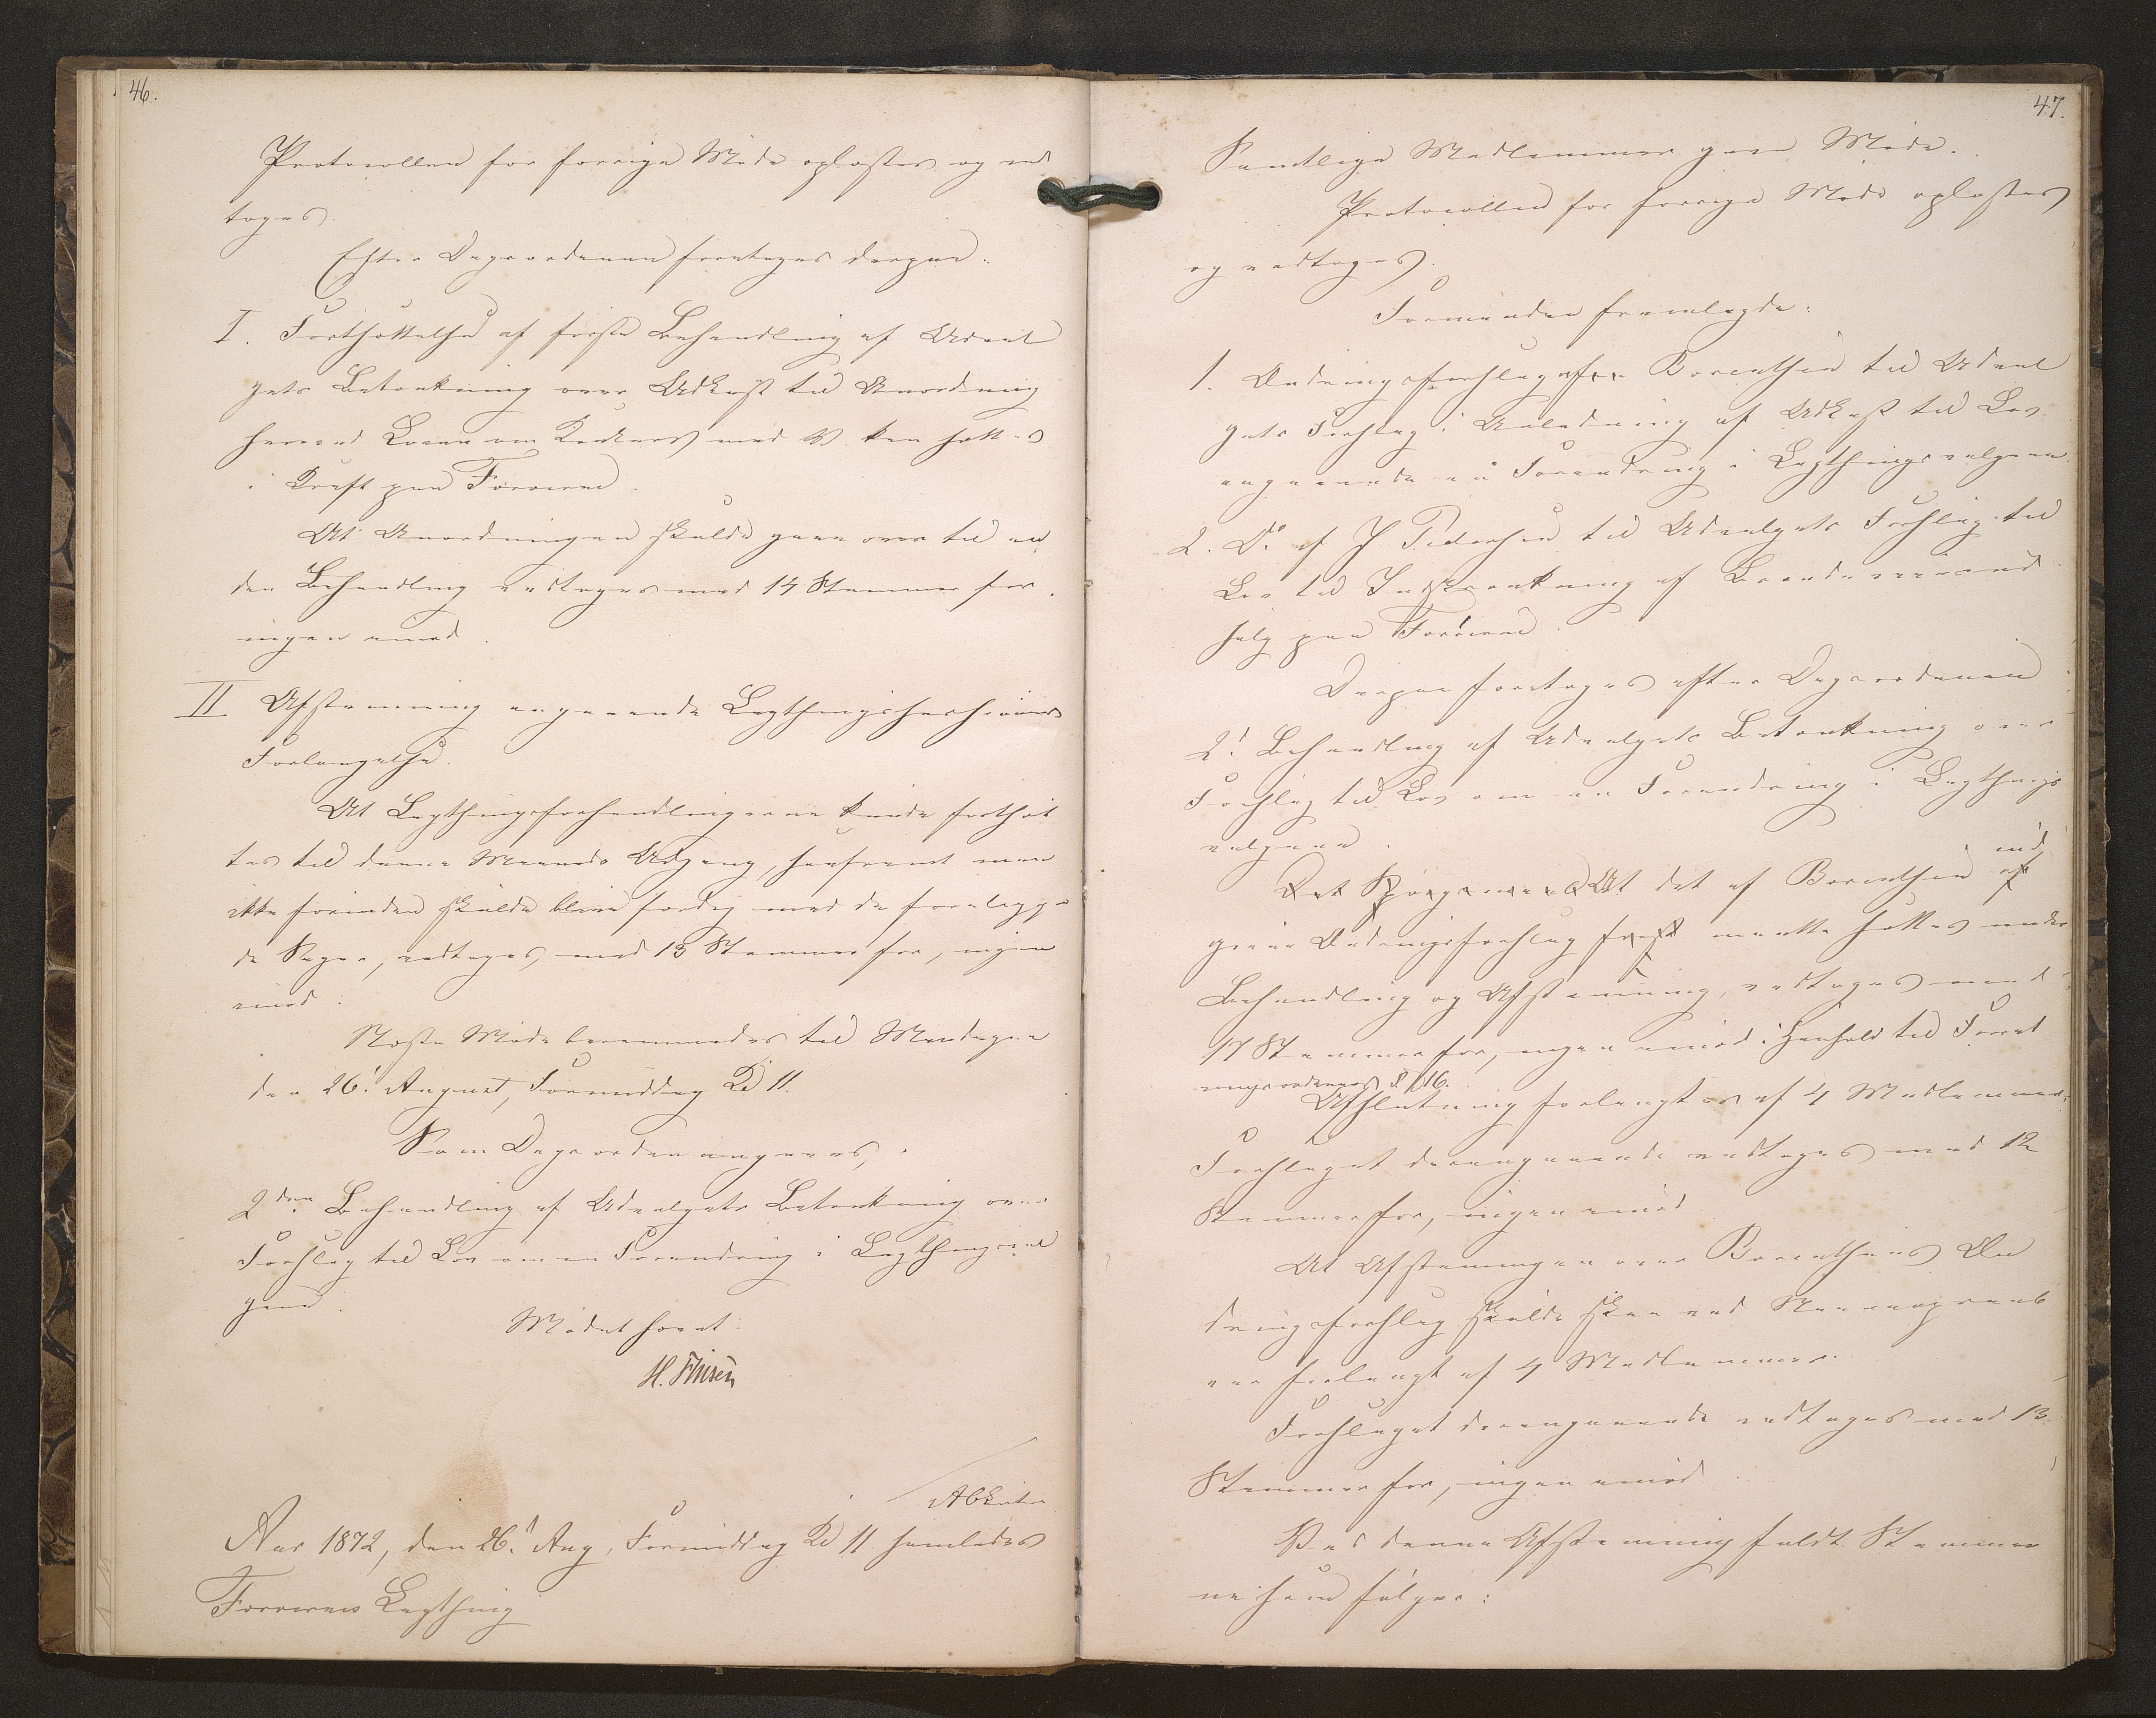 46.
Protocollen for forrige Møde oplæstes og ved
toges.
Efter Dagsordenen foretoges derpaa:
I. Forthsættelse af første Behandling af Udval
gets Betænkning over Udkast til Anordning
hvorved Loven om Renters med V. kan sættes
i Kraft paa Færøerne.
At Anordningen skulde gaae over til an
den Behandling vedtoges med 14 Stemmer for
ingen imod.
II Afstemning angaaende Lagthingssessionens
Forlængelse.
At Lagthingsforhandlingerne kunde fortsæt
tes til denne Maaneds Udgang, saafremt man
ikke forinden skulde blive færdig med de forelig͏gen
de Sager, vedtoges med 13 Stemmer for, ingen
imod.
Næste Møde berammedes til Mandagen
den 26! August, Formiddag Kl 11.
Som Dagsorden angaves,
2den Behandling af Udvalgets Betænkning over
Forslag til Lov om en Forandring i Lagthingsval
gene.
Mødet hævet.
H. Finsen
Aar 1872, den 26! Aug, Formiddag Kl 11 samledes
Færøernes Lagthing
47.
Samtlige Medlemmer gave Møde.
Protocollen for forrige Møde oplæstes
og vedtoges.
Formanden fremlagde:
1. Ændringsforslag af Berenthsen til Udval
gets Forslag i Anledning af Udkast til Lov
angaaende en Forandring i Lagthingsvalgene.
2. Do. af J. Petersen til Udvalgets Forslag til
Lov til Indskrænkning af Brændeviins
salg paa Færøerne.
Derpaa foretoges efter Dagsordenen
2! Behandling af Udvalgets Betænkning over
Forslag til Lov om en Forandring i Lagthings
valgene.
At det af Berenthsen ind
givne Ændringsforslag først maatte sættes under
Behandling og Afstemning, vedtoges med
17 Stemmer for, ingen imod i Henhold til Forret
ningsordenens § 16.
Afslutning forlangtes af 4 Medlemmer.
Forslaget derangaaende vedtoges med 12
Stemmer for, ingen imod
At Afstemningen over Berenthsens Æn
dringsforslag skulde skee ved Navneopraab
var forlangt af 4 Medlemmer.
Forslaget derangaaende vedtoges med 13
Stemmer for, ingen imod.
Ved denne Afstemning faldt Stemmer
ne som følger: